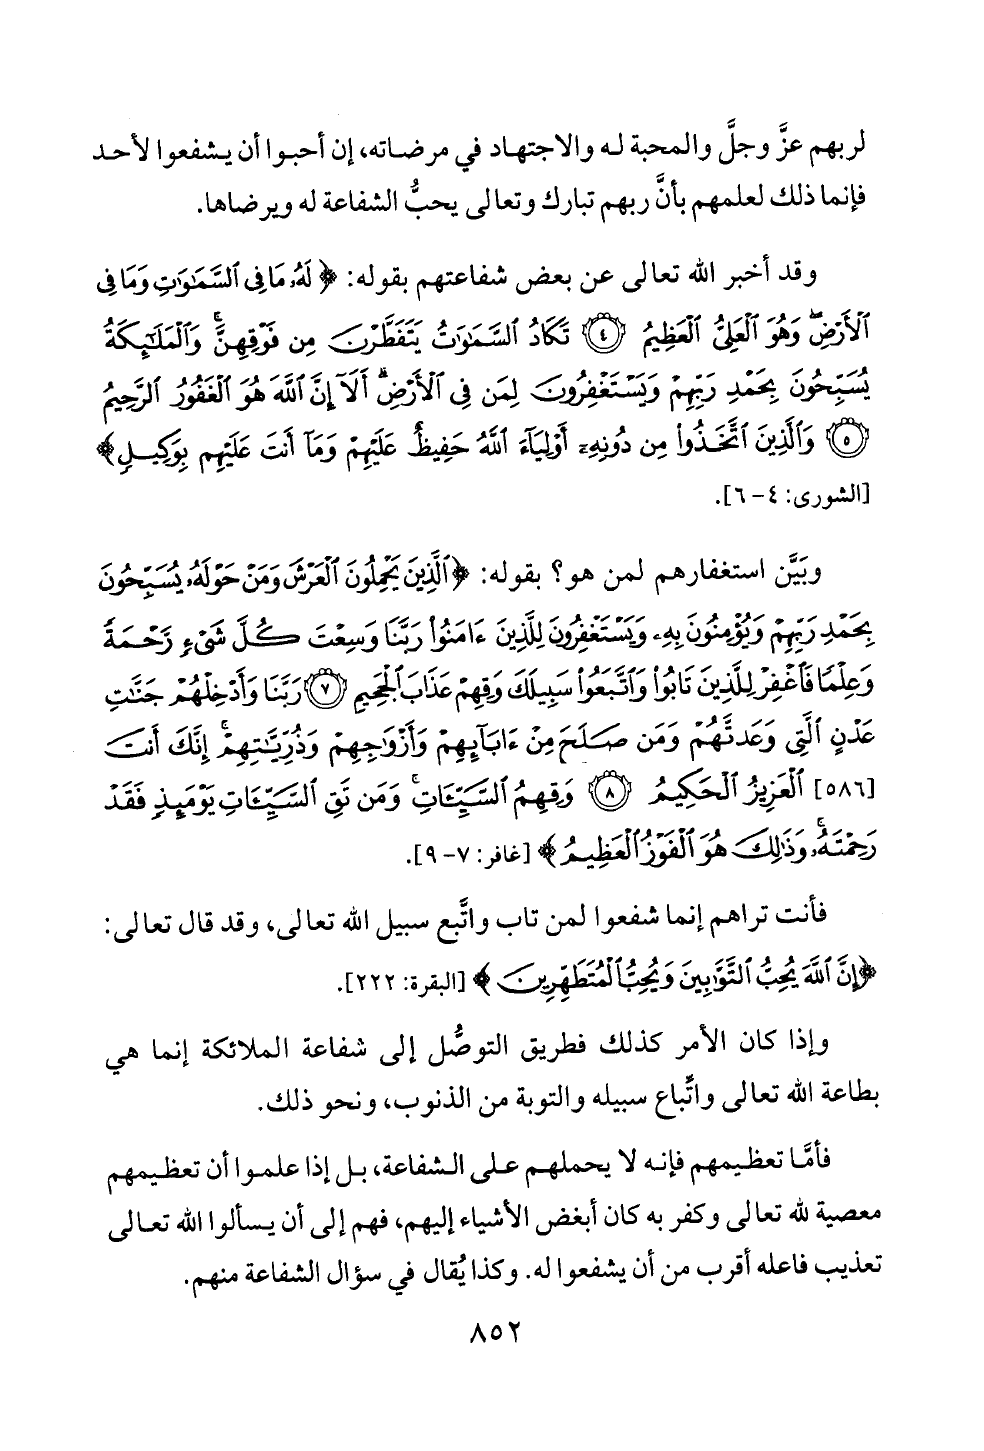 لربهم عزَّ وجلَّ والمحبة له والاجتهاد في مرضاته، إن أحبوا أن يشفعوا لأحد
فإنما ذلك لعلمهم بأنَّ ربهم تبارك وتعالى يحبُّ الشفاعة له ويرضاها.
وقد أخبر الله تعالى عن بعض شفاعتهم بقوله: ﴿لَهُۥ مَا فِى ٱلسَّمَٰوَٰتِ وَمَا فِى
ٱلْأَرْضِ ۖ وَهُوَ ٱلْعَلِىُّ ٱلْعَظِيمُ ٤ تَكَادُ ٱلسَّمَٰوَٰتُ يَتَفَطَّرْنَ مِن فَوْقِهِنَّ ۚ وَٱلْمَلَٰٓئِكَةُ
يُسَبِّحُونَ بِحَمْدِ رَبِّهِمْ وَيَسْتَغْفِرُونَ لِمَن فِى ٱلْأَرْضِ ۗ أَلَآ إِنَّ ٱللَّهَ هُوَ ٱلْغَفُورُ ٱلرَّحِيمُ
٥ وَٱلَّذِينَ ٱتَّخَذُوا۟ مِن دُونِهِۦٓ أَوْلِيَآءَ ٱللَّهُ حَفِيظٌ عَلَيْهِمْ وَمَآ أَنتَ عَلَيْهِم بِوَكِيلٍ﴾
[الشورى: ٤-٦].
وبَيَّن استغفارهم لمن هو؟ بقوله: ﴿ٱلَّذِينَ يَحْمِلُونَ ٱلْعَرْشَ وَمَنْ حَوْلَهُۥ يُسَبِّحُونَ
بِحَمْدِ رَبِّهِمْ وَيُؤْمِنُونَ بِهِۦ وَيَسْتَغْفِرُونَ لِلَّذِينَ ءَامَنُوا۟ رَبَّنَا وَسِعْتَ كُلَّ شَىْءٍ رَّحْمَةً
وَعِلْمًا فَٱغْفِرْ لِلَّذِينَ تَابُوا۟ وَٱتَّبَعُوا۟ سَبِيلَكَ وَقِهِمْ عَذَابَ ٱلْجَحِيمِ ٧ رَبَّنَا وَأَدْخِلْهُمْ جَنَّٰتِ
عَدْنٍ ٱلَّتِى وَعَدتَّهُمْ وَمَن صَلَحَ مِنْ ءَابَآئِهِمْ وَأَزْوَٰجِهِمْ وَذُرِّيَّٰتِهِمْ ۚ إِنَّكَ أَنتَ
[٥٨٦] ٱلْعَزِيزُ ٱلْحَكِيمُ ٨ وَقِهِمُ ٱلسَّيِّـَٔاتِ ۚ وَمَن تَقِ ٱلسَّيِّـَٔاتِ يَوْمَئِذٍ فَقَدْ
رَحِمْتَهُۥ ۚ وَذَٰلِكَ هُوَ ٱلْفَوْزُ ٱلْعَظِيمُ﴾ [غافر: ٧-٩].
فأنت تراهم إنما شفعوا لمن تاب واتَّبع سبيل الله تعالى، وقد قال تعالى:
﴿إِنَّ ٱللَّهَ يُحِبُّ ٱلتَّوَّٰبِينَ وَيُحِبُّ ٱلْمُتَطَهِّرِينَ﴾ [البقرة: ٢٢٢].
وإذا كان الأمر كذلك فطريق التوصُّل إلى شفاعة الملائكة إنما هي
بطاعة الله تعالى واتِّباع سبيله والتوبة من الذنوب، ونحو ذلك.
فأمَّا تعظيمهم فإنه لا يحملهم على الشفاعة، بل إذا علموا أن تعظيمهم
معصية لله تعالى وكفر به كان أبغض الأشياء إليهم، فهم إلى أن يسألوا الله تعالى
تعذيب فاعله أقرب من أن يشفعوا له. وكذا يُقال في سؤال الشفاعة منهم.
٨٥٢